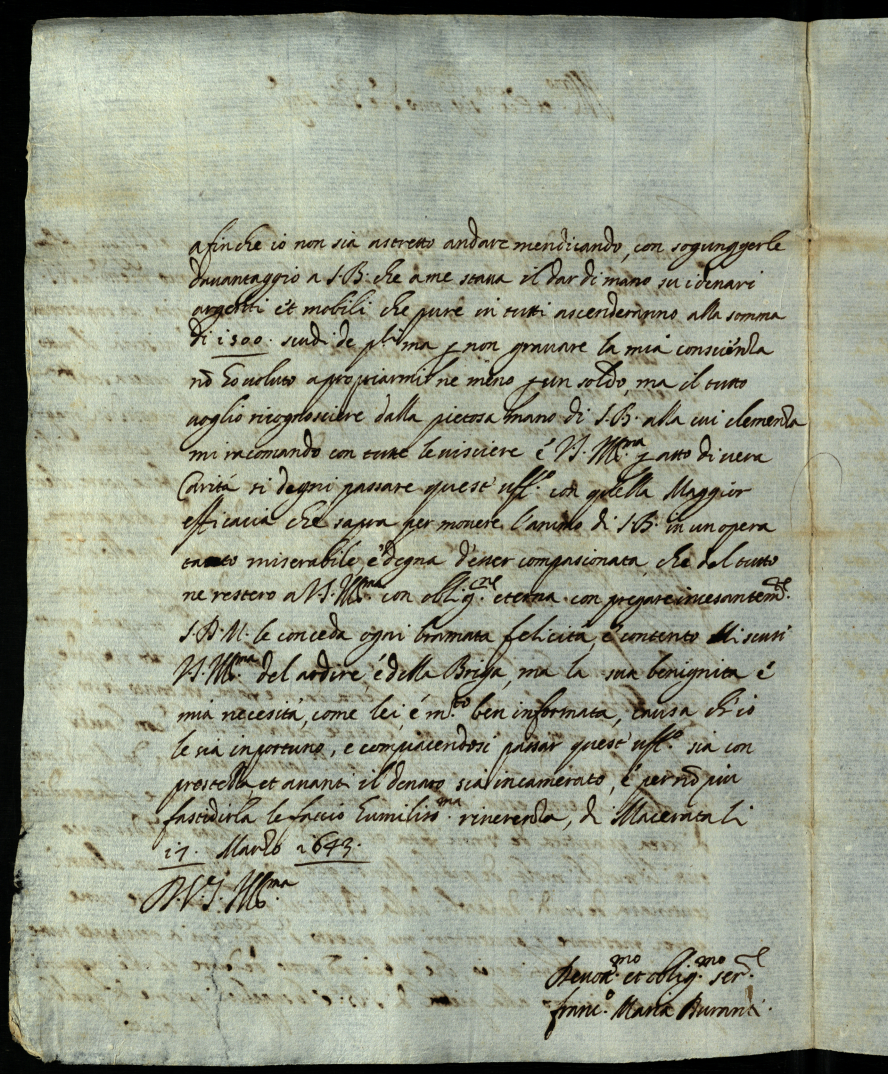 afinche io non sia astretto andare mendicando, con sogiungerle
davantaggio a S. B. che a me stava il dar di mano su i denari
argenti et mobili che pure in tutti ascenderanno alla somma
di 1500. scudi de pli ma p non gravare la mia conscienza
nō ho voluto apropriarmi ne meno p un soldo, ma il tutto
voglio ricognosciere dalla pietosa mano di S. B. alla cui clemenza
mi racomando con tutte le visciere é V. S. Ill.ma p atto di vera
Caritá si degni passare quest' uff.o con quella Maggior
efficacia che sapra per movere l'animo di S. B. in un opera
tanto miserabile, é degna d'esser compasionata che del tutto
ne restero a V. S. Ill.ma con oblig.ne eterna con pregare incesantem.te
S. D. M. le conceda ogni bramata felicitá, é contento Mi scusi
V. S. Ill.ma del ardire, é della Briga, ma la sua benignita é
mia necesitá, come lei, é m.to ben informata, causa ch'io
le sia inportuno, e compiacendosi passar quest' uff.o sia con
prestezza et avanti il denaro sia incamerato, é per nō piu
fastidirla le faccio humiliss.ma riverenza, di Macerata li
17. Marzo 1643.
D. V. S. Ill.ma
Devot.mo et oblig.mo ser.e
franc.o Maria Buranti